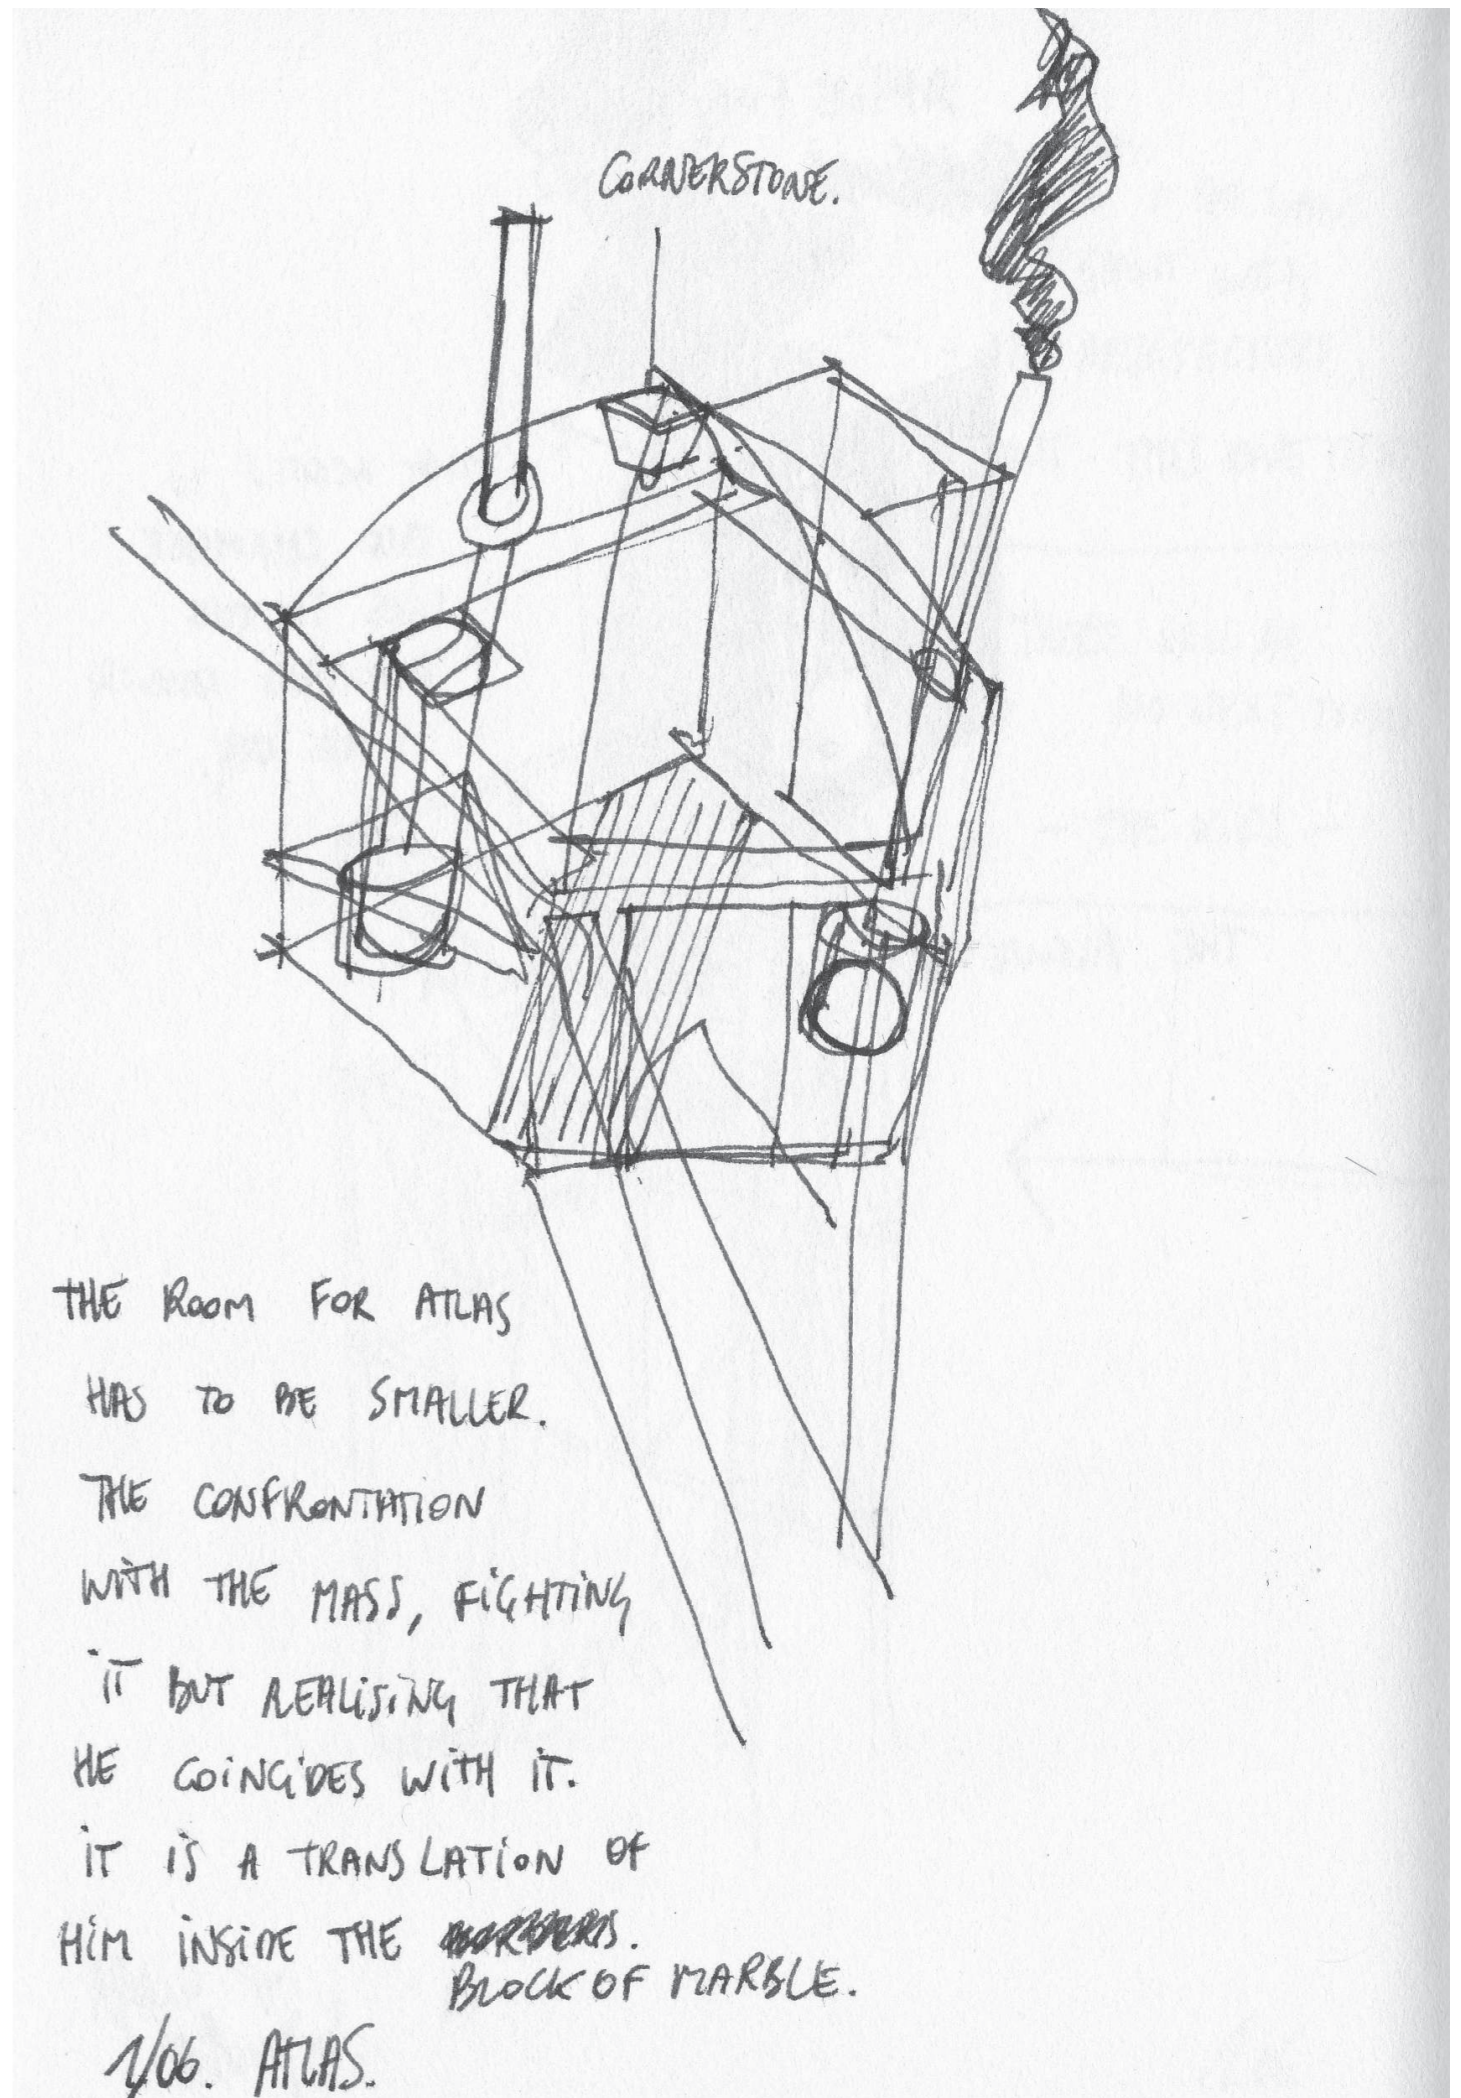 CORNERSTONE.
THE ROOM FOR ATLAS
HAS TO BE SMALLER.
THE CONFRONTATION
WITH THE MASS, FIGHTING
IT BUT REALISING THAT
HE COINCIDES WITH IT.
IT IS A TRANSLATION OF
HIM INSIDE THE BORDERS.
BLOCK OF MARBLE.
1/06. ATLAS.